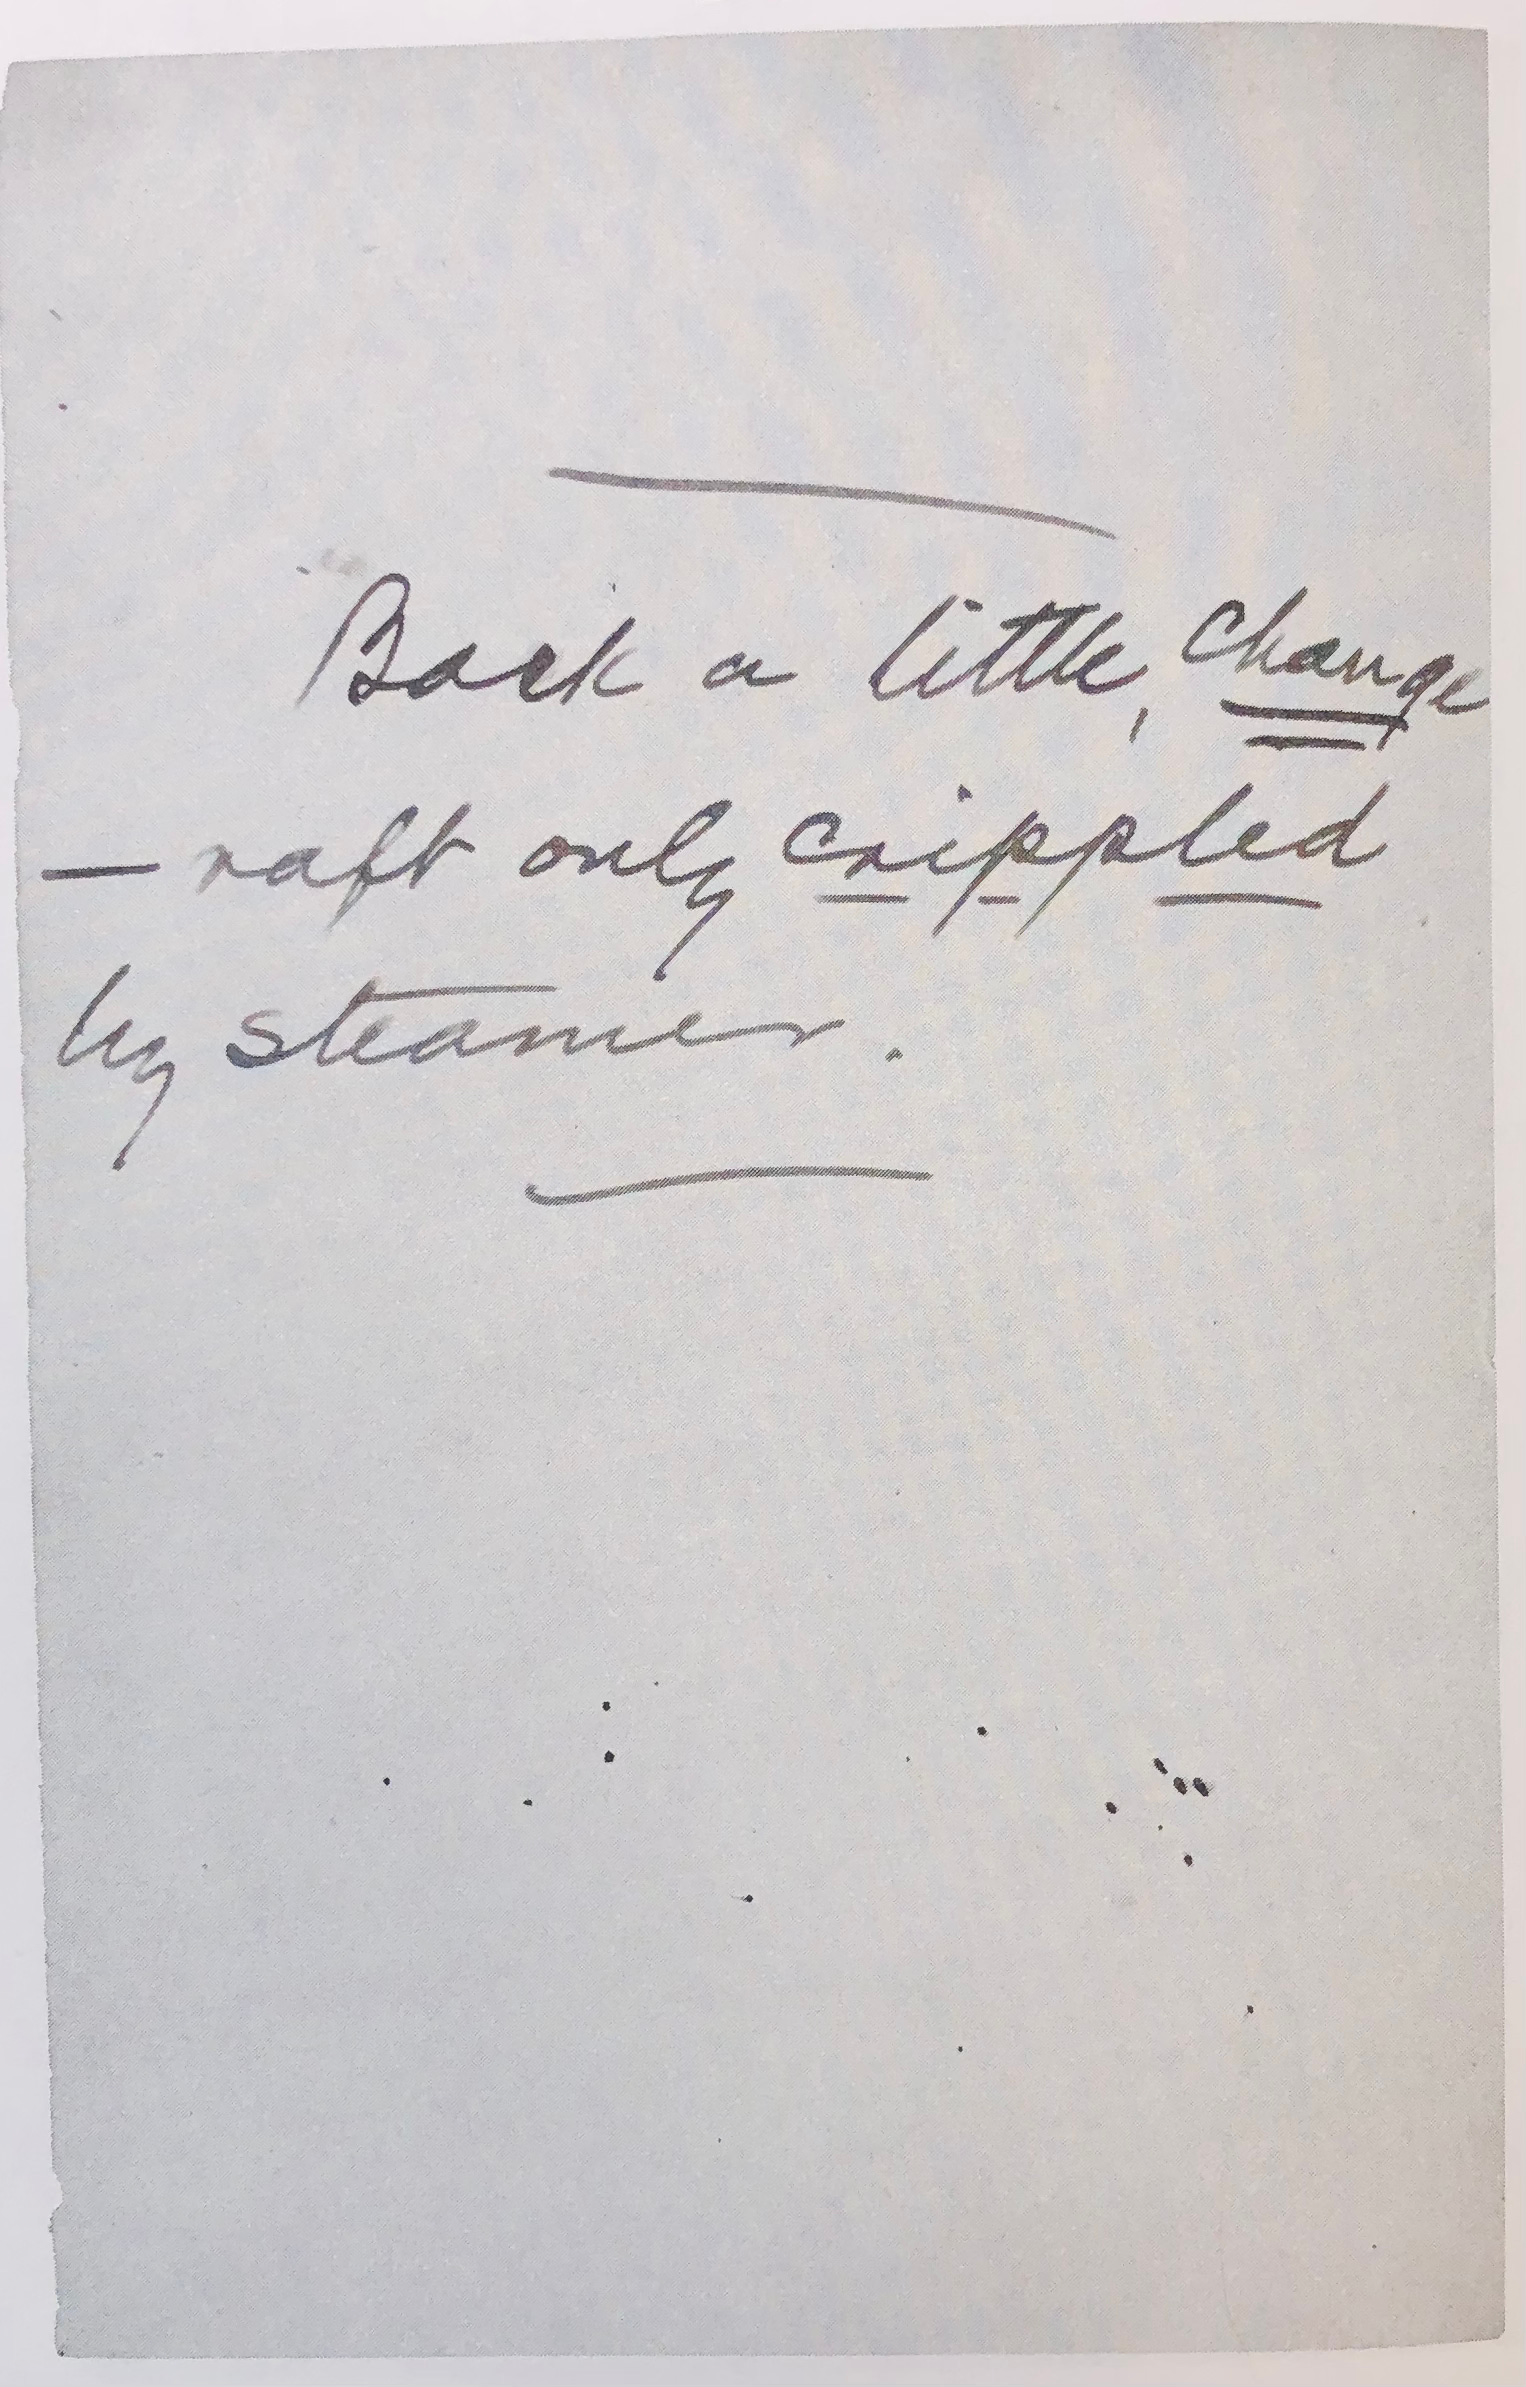 Back a little, Change
— raft only crippled
by steamer.